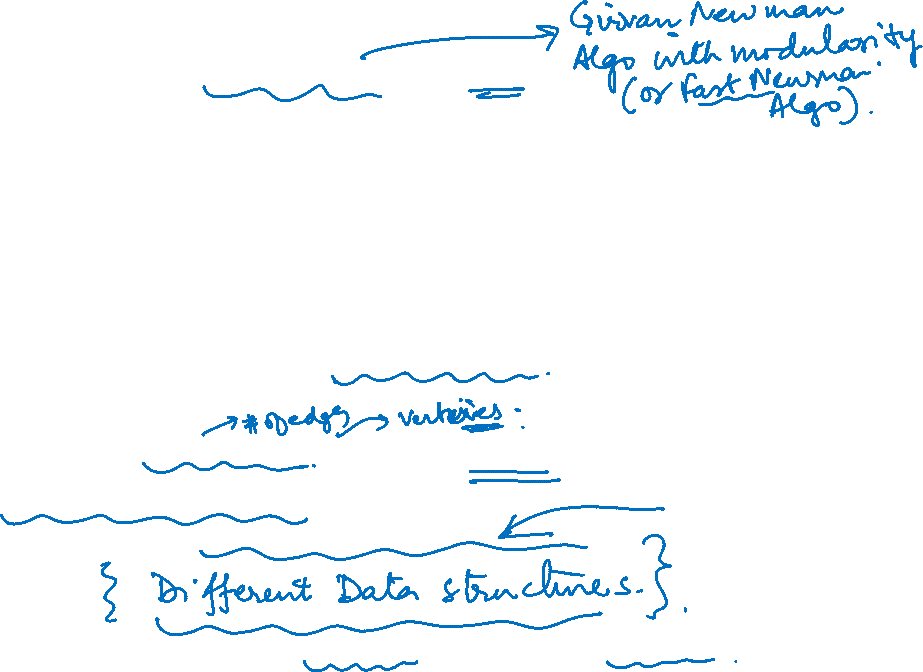 Girvan Newman
Algo with modularity
(or Fast Newman
Algo).
# of edges → vertices.
{ Different Data structures. }.